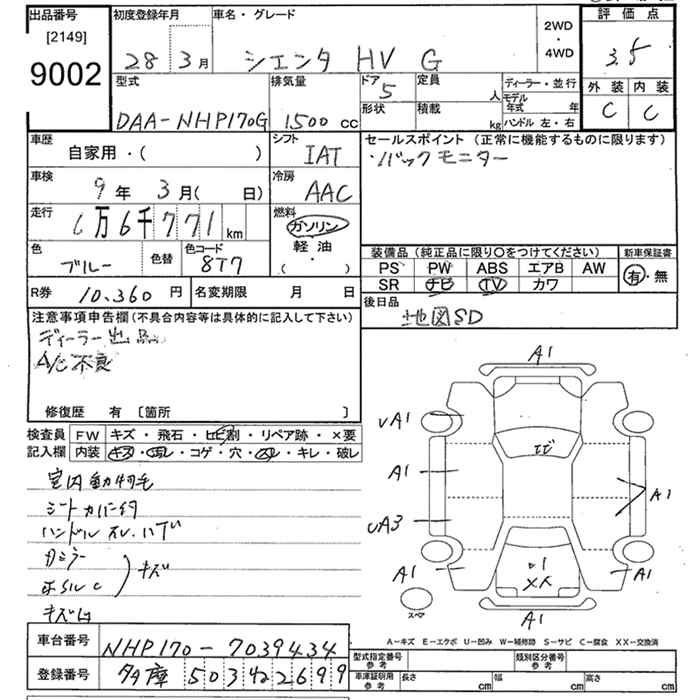 出品番号
[2149]
9002
初度登録年月
28年3月
車名・グレード
シエンタ HV G
2WD
・
4WD
評価点
3.5
外装 内装
C C
型式
DAA-NHP170G
排気量
1500 cc
ドア 5
形状
定員 人
積載 kg
ディーラー・並行
モデル年式 年
ハンドル 左・右
車歴
自家用・( )
シフト
IAT
車検
9年 3月( 日)
冷房
AAC
走行
6万6千771 km
燃料
ガソリン
軽油
( ・ )
色
ブルー
色替
色コード
8T7
R券 10,360円
名変期限 月 日
セールスポイント (正常に機能するものに限ります)
・バックモニター
装備品 (純正品に限り〇をつけてください)
新車保証書
PS PW ABS エアB AW
SR ナビ TV カワ
有・無
後日品
地図SD
注意事項申告欄 (不具合内容等は具体的に記入して下さい)
ディーラー出品
A/C不良
修復歴 有 [箇所 ]
検査員記入欄
FW キズ・飛石・ヒビ割・リペア跡・×要
内装 キズ・ヨゴレ・コゲ・穴・スレ・キレ・破レ
室内動物毛
シートカバー付
ハンドル スレ・ハゲ
キズ
車台番号
NHP170-7039434
登録番号
503 2699
A1
A1
A1
A1
A1
A1
A1
スペア
A-キズ E-エクボ U-凹み W-補修跡 S-サビ C-腐食 XX-交換済
型式指定番号
参考
類別区分番号
参考
車庫証明用
参考
長さ cm
幅 cm
高さ cm